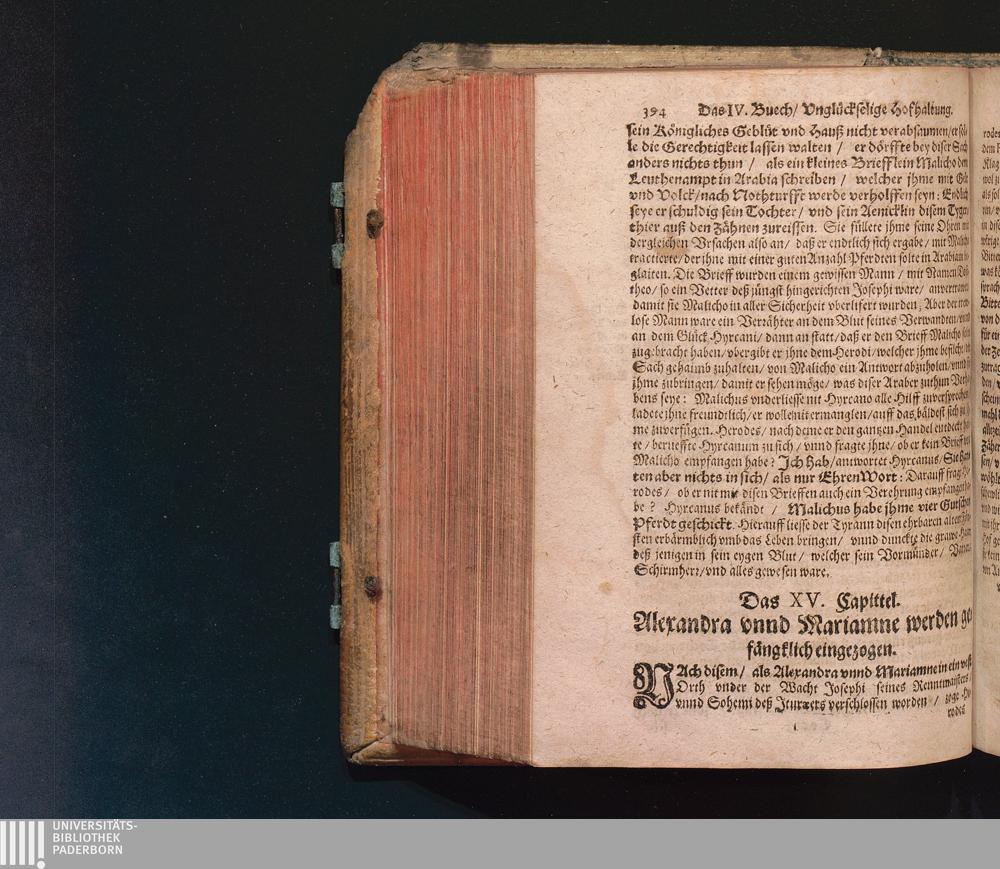 394 Das IV. Buech/ Vnglückselige Hofhaltung.
sein Königliches Geblüt vnd Hauß nicht verabsaumen/ er sol
le die Gerechtigkeit lassen walten / er dörffte bey diser Sach
anders nichts thun / als ein kleines Briefflein Malicho dem
Leuthenampt in Arabia schreiben / welcher jhme mit Gelt
vnd Volck/ nach Nothturfft werde verholffen seyn: Endlich
seye er schuldig sein Tochter/ vnd sein Aenicklin disem Tyger
thier auß den Zähnen zureissen. Sie füllete jhme seine Ohren mit
dergleichen Vrsachen also an/ daß er endtlich sich ergabe/ mit Malicho
tractierte/ der jhne mit einer guten Anzahl Pferdten solte in Arabiam
glaiten. Die Brieff wurden einem gewissen Mann / mit Namen
theo/ so ein Vetter deß jüngst hingerichten Josephi ware/ anvertrawet
damit sie Malicho in aller Sicherheit vberlifert wurden; Aber der trew
lose Mann ware ein Verrähter an dem Blut seines Verwandten/ vnnd
an dem Glück Hyrcani/ dann an statt/ daß er den Brieff Malicho solte
zugebracht haben/ vbergibt er jhne dem Herodi/ welcher jhme befilcht
Sach gehaimb zuhalten/ von Malicho ein Antwort abzuholen/ vnnd
jhme zubringen/ damit er sehen möge/ was diser Araber zuthun
bens seye: Malichus vnderliesse nit Hyrcano alle Hilff zuversprechen
ladete jhne freundtlich/ er wolle nit ermanglen/ auff das bäldest sich zu jh
me zuverfügen. Herodes/ nach deme er den gantzen Handel entdeckt
te/ berueffte Hyrcanum zu sich/ vnnd fragte jhne/ ob er kein Brieff von
Malicho empfangen habe? Ich hab/ antwortet Hyrcanus/
ten aber nichts in sich/ als nur Ehren Wort: Darauff fragt He
rodes/ ob er nit mit disen Brieffen auch ein Verehrung empfangen ha
be? Hyrcanus bekändt / Malichus habe jhme vier Gutschen
Pferdt geschickt. Hierauff liesse der Tyrann disen ehrbaren alten
sten erbärmblich vmb das Leben bringen/ vnnd dunckte die grawe Haar
deß jenigen in sein eygen Blut/ welcher sein Vormünder/ Vatter
Schirmherr/ vnd alles gewesen ware.
Das XV. Capittel.
Alexandra vnnd Mariamne werden ge
fängklich eingezogen.
NAch disem/ als Alexandra vnnd Mariamne in ein vest
Orth vnder der Wacht Josephi seines Renntmaisters/
vnnd Sohemi deß Ituræers verschlossen worden / zoge He
rodes
UNIVERSITÄTS-
BIBLIOTHEK
PADERBORN